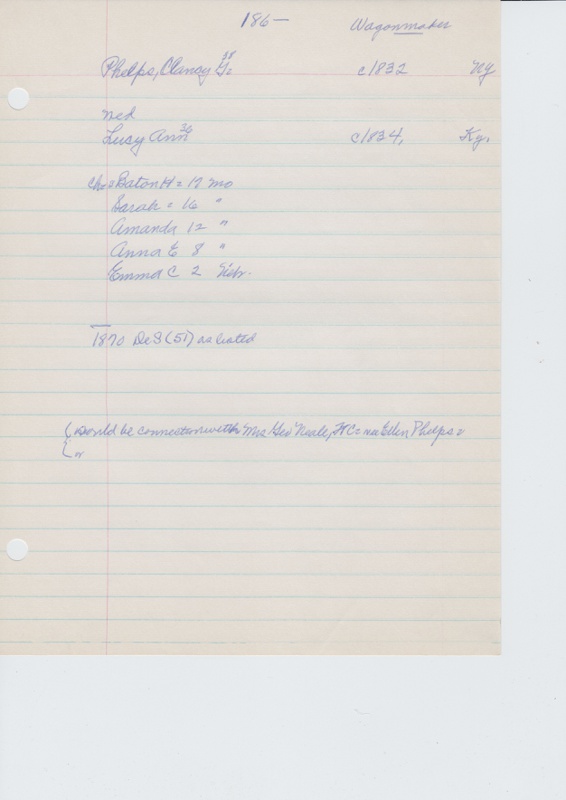 186— Wagonmaker
Phelps, Clancy G= 38 c1832 NY
med
Lucy Ann 36 c1834, Ky.
ch= = Baton H = 17 mo
Sarah = 16 "
Amanda 12 "
Anna E 8 "
Emma C 2 Nebr.
1870 DeS (51) as listed
(would be connection with Mrs Geo Neale, HC= nee Ellen Phelps =
( or